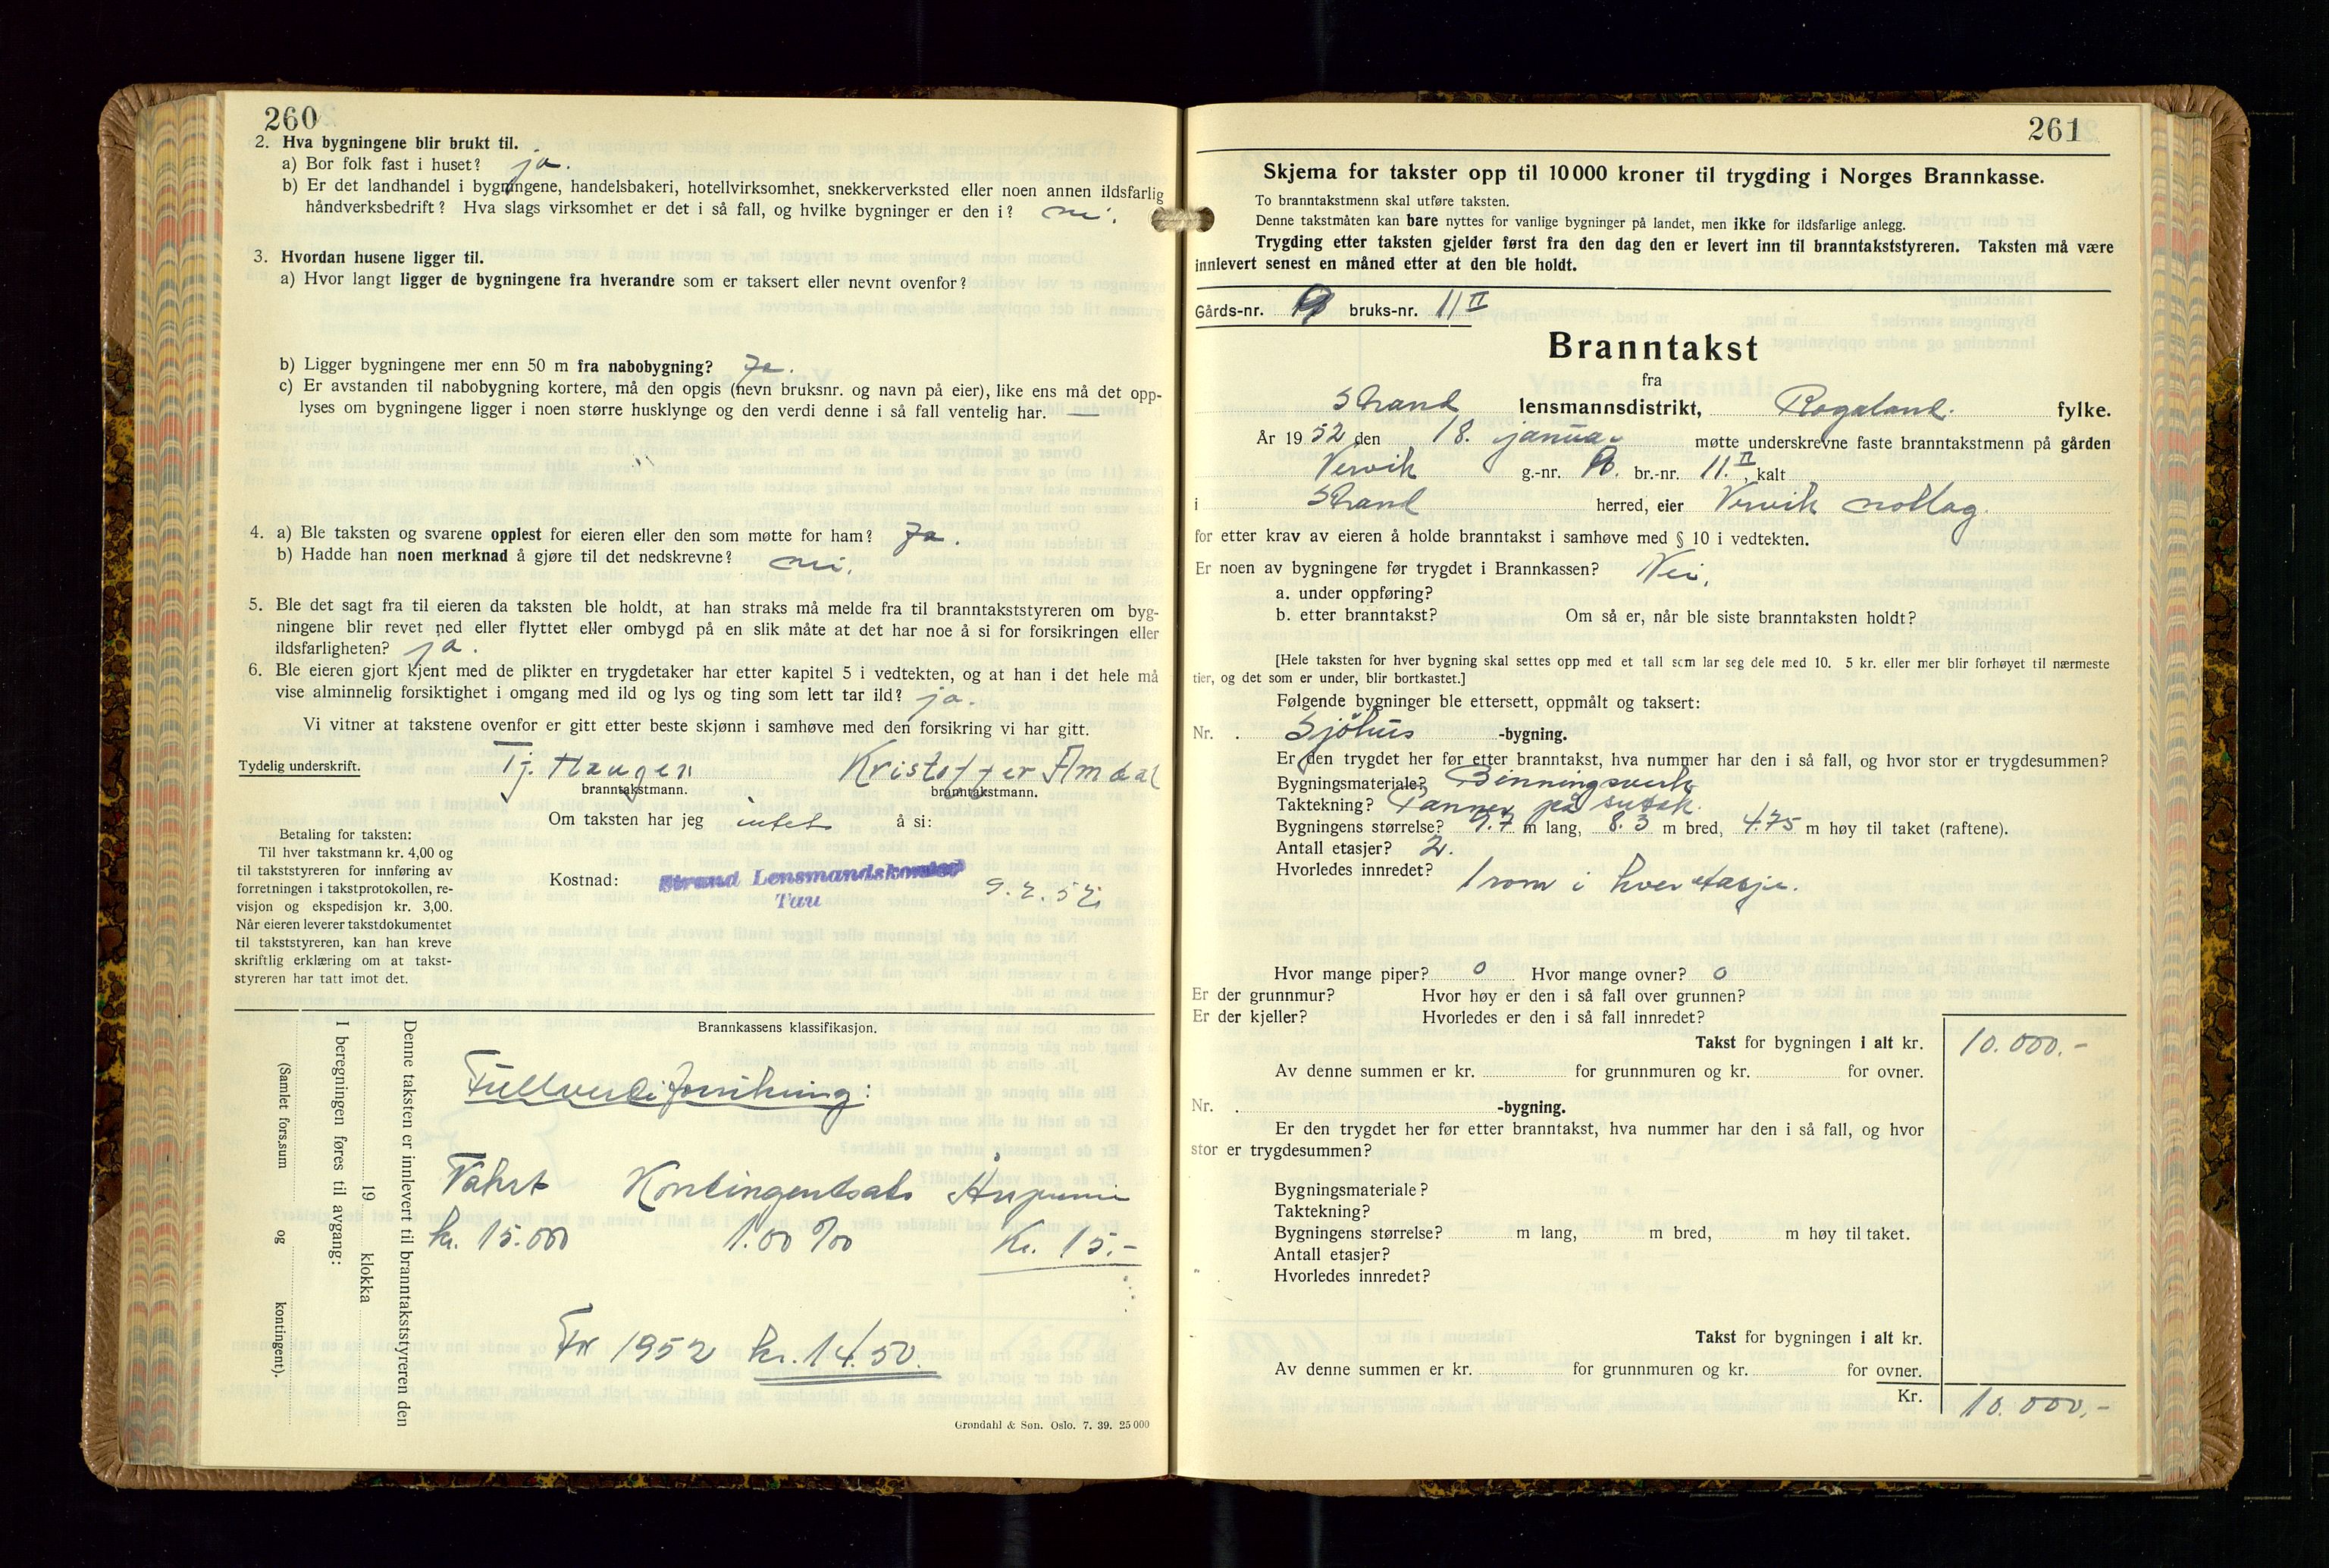 260
2. Hva bygningene blir brukt til.
a) Bor folk fast i huset? ja.
b) Er det landhandel i bygningene, handelsbakeri, hotellvirksomhet, snekkerverksted eller noen annen ildsfarlig
håndverksbedrift? Hva slags virksomhet er det i så fall, og hvilke bygninger er den i? nei.
3. Hvordan husene ligger til.
a) Hvor langt ligger de bygningene fra hverandre som er taksert eller nevnt ovenfor?
b) Ligger bygningene mer enn 50 m fra nabobygning? Ja.
c) Er avstanden til nabobygning kortere, må den opgis (nevn bruksnr. og navn på eier), like ens må det opp-
lyses om bygningene ligger i noen større husklynge og den verdi denne i så fall ventelig har. —
4. a) Ble taksten og svarene opplest for eieren eller den som møtte for ham? Ja.
b) Hadde han noen merknad å gjøre til det nedskrevne? nei.
5. Ble det sagt fra til eieren da taksten ble holdt, at han straks må melde fra til branntakststyreren om byg-
ningene blir revet ned eller flyttet eller ombygd på en slik måte at det har noe å si for forsikringen eller
ildsfarligheten? ja.
6. Ble eieren gjort kjent med de plikter en trygdetaker har etter kapitel 5 i vedtekten, og at han i det hele må
vise alminnelig forsiktighet i omgang med ild og lys og ting som lett tar ild? ja.
Vi vitner at takstene ovenfor er gitt etter beste skjønn i samhøve med den forsikring vi har gitt.
Tydelig underskrift. Tj. Haugen Kristoffer Amdal
branntakstmann. branntakstmann.
Om taksten har jeg intet å si:
Betaling for taksten:
Til hver takstmann kr. 4,00 og
til takststyreren for innføring av
forretningen i takstprotokollen, re-
visjon og ekspedisjon kr. 3,00.
Når eieren leverer takstdokumentet
til takststyreren, kan han kreve
skriftlig erklæring om at takst-
styreren har tatt imot det.
Kostnad: Strand Lensmandskontor 9.2.52
Tau
Denne taksten er innlevert til branntakststyreren den
19 klokka
I beregningen føres til avgang:
(Samlet fors.sum og kontingent).
Brannkassens klassifikasjon.
Fullverdiforsikring:
Takst Kontingentsats Årspremie
kr. 15.000 1.00 ‰ Kr. 15.-
For 1952 kr. 14.50.
Grøndahl & Søn. Oslo. 7. 39. 25 000
261
Skjema for takster opp til 10 000 kroner til trygding i Norges Brannkasse.
To branntakstmenn skal utføre taksten.
Denne takstmåten kan bare nyttes for vanlige bygninger på landet, men ikke for ildsfarlige anlegg.
Trygding etter taksten gjelder først fra den dag den er levert inn til branntakststyreren. Taksten må være
innlevert senest en måned etter at den ble holdt.
Gårds-nr. bruks-nr. 11 II
Branntakst
fra
Strand lensmannsdistrikt, Rogaland. fylke.
År 1952 den 18. januar møtte underskrevne faste branntakstmenn på gården
Vervik g.-nr. br.-nr. 11. II, kalt
i Strand herred, eier Vervik notlag.
for etter krav av eieren å holde branntakst i samhøve med § 10 i vedtekten.
Er noen av bygningene før trygdet i Brannkassen? Nei.
a. under oppføring?
b. etter branntakst? Om så er, når ble siste branntaksten holdt?
[Hele taksten for hver bygning skal settes opp med et tall som lar seg dele med 10. 5 kr. eller mer blir forhøyet til nærmeste
tier, og det som er under, blir bortkastet.]
Følgende bygninger ble ettersett, oppmålt og taksert:
Nr. Sjöhus -bygning.
Er den trygdet her før etter branntakst, hva nummer har den i så fall, og hvor stor er trygdesummen?
Bygningsmateriale? Binningsverk
Taktekning? Panner på sutak.
Bygningens størrelse? 9.7 m lang, 8.3 m bred, 4.75 m høy til taket (raftene).
Antall etasjer? 2.
Hvorledes innredet? 1 rom i hver etasje.
Hvor mange piper? 0 Hvor mange ovner? 0
Er der grunnmur? Hvor høy er den i så fall over grunnen?
Er der kjeller? Hvorledes er den i så fall innredet?
Takst for bygningen i alt kr. 10.000.-
Av denne summen er kr. for grunnmuren og kr. for ovner.
Nr. -bygning.
Er den trygdet her før etter branntakst, hva nummer har den i så fall, og hvor
stor er trygdesummen?
Bygningsmateriale?
Taktekning?
Bygningens størrelse? m lang, m bred, m høy til taket.
Antall etasjer?
Hvorledes innredet?
Takst for bygningen i alt kr.
Av denne summen er kr. for grunnmuren og kr. for ovner.
Kr. 10.000.-